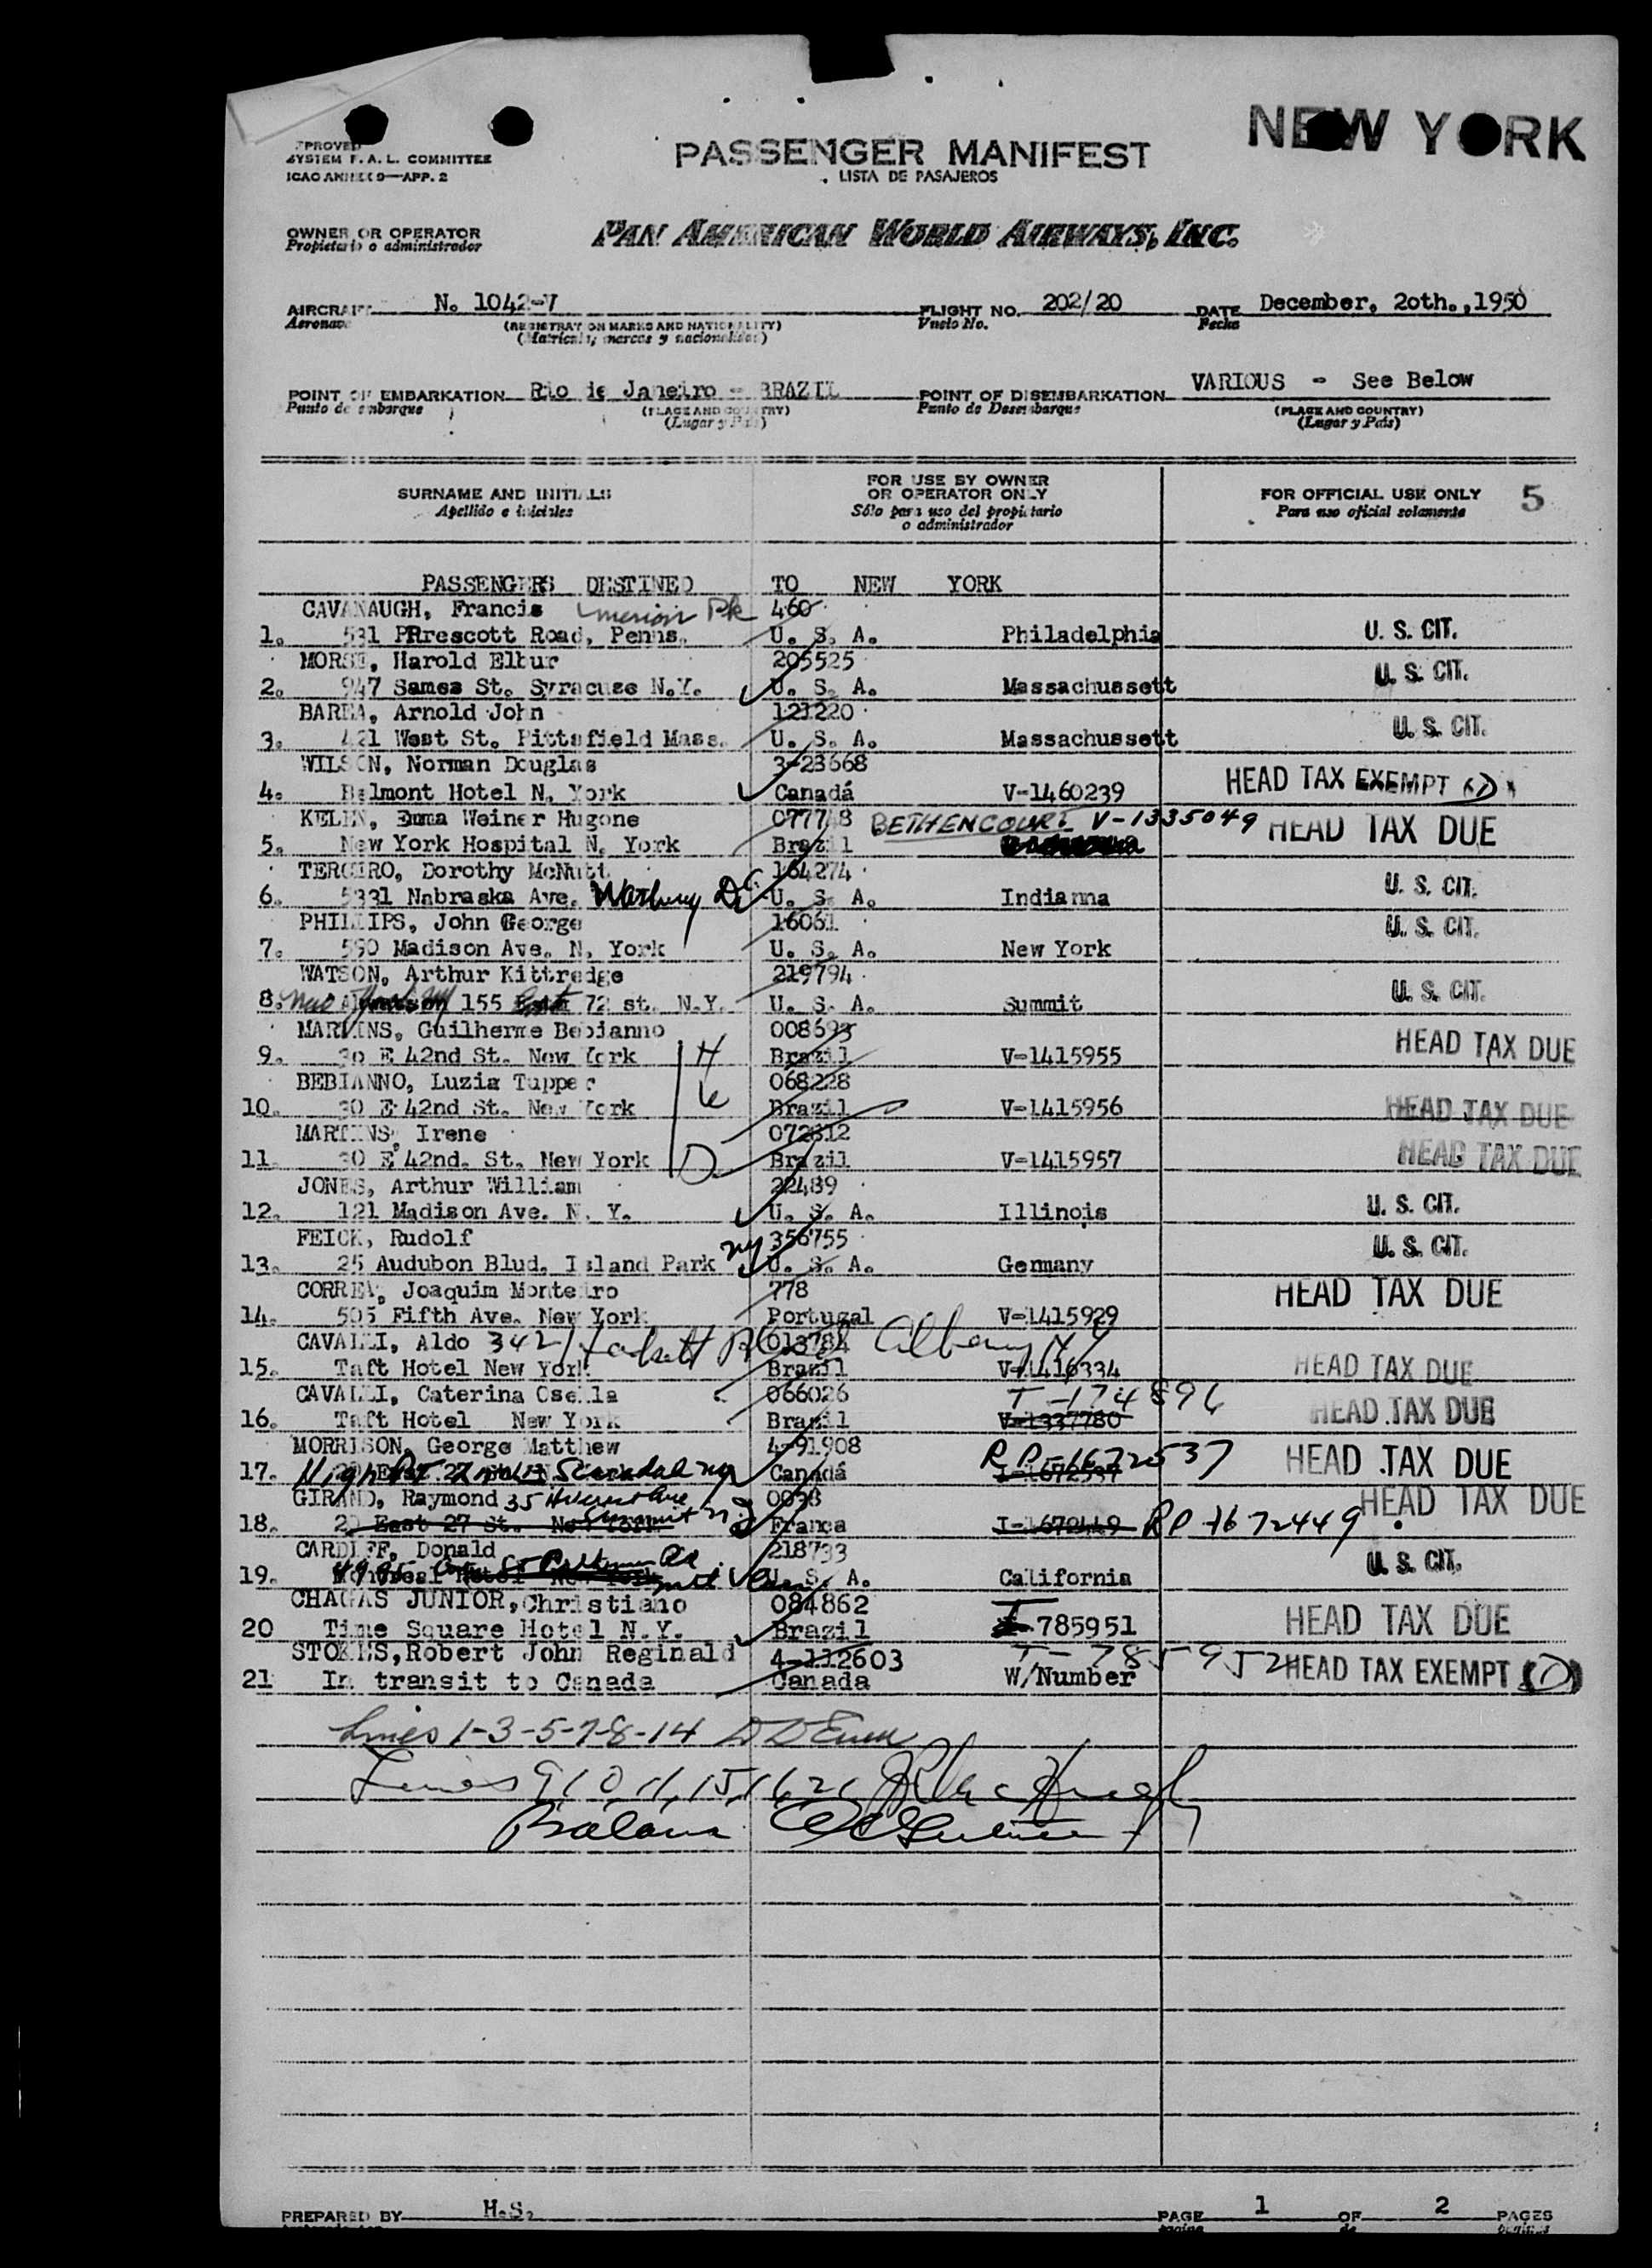 NEW YORK
APPROVED
SYSTEM F. A. L. COMMITTEE
ICAO ANNEX 9—APP. 2
PASSENGER MANIFEST
LISTA DE PASAJEROS
OWNER OR OPERATOR
Propietario o administrador
PAN AMERICAN WORLD AIRWAYS, INC.
AIRCRAFT N. 1042-V FLIGHT NO. 202/20 DATE December, 20th.,1950
Aeronave (REGISTRATION MARKS AND NATIONALITY) Vuelo No. Fecha
(Matricula, marcas y nacionalidad)
POINT OF EMBARKATION Rio de Janeiro - BRAZIL POINT OF DISEMBARKATION VARIOUS - See Below
Punto de embarque (PLACE AND COUNTRY) Punto de Desembarque (PLACE AND COUNTRY)
(Lugar y País) (Lugar y País)
SURNAME AND INITIALS FOR USE BY OWNER OR OPERATOR ONLY FOR OFFICIAL USE ONLY 5
Apellido e iniciales Sólo para uso del propietario o administrador Para uso oficial solamente
PASSENGERS DESTINED TO NEW YORK
CAVANAUGH, Francis Merion Pk 460
1. 531 PRrescott Road, Penns. U. S. A. Philadelphia U. S. CIT.
MORSE, Harold Elbur 205525
2. 947 Sames St. Syracuse N.Y. U. S. A. Massachussett U. S. CIT.
BAREA, Arnold John 121220
3. 421 West St. Pittsfield Mass. U. S. A. Massachussett U. S. CIT.
WILSON, Norman Douglas 3-23668
4. Belmont Hotel N. York Canadá V-1460239 HEAD TAX EXEMPT (D)
KELEN, Emma Weiner Hugone 077748 BETHENCOURT V-1335049
5. New York Hospital N. York Brazil HEAD TAX DUE
TERCIRO, Dorothy McNutt 164274
6. 5331 Nabraska Ave. DC U. S. A. Indianna U. S. CIT.
PHILLIPS, John George 16061
7. 590 Madison Ave. N. York U. S. A. New York U. S. CIT.
WATSON, Arthur Kittredge 219794
8. 155 East 72 st. N.Y. U. S. A. Summit U. S. CIT.
MARTINS, Guilherme Bebianno 008693
9. 30 E 42nd St. New York H Brazil V-1415955 HEAD TAX DUE
BEBIANNO, Luzia Tupper 068228
10. 30 E 42nd St. New York Brazil V-1415956 HEAD TAX DUE
MARTINS, Irene 072812
11. 30 E 42nd. St. New York D Brazil V-1415957 HEAD TAX DUE
JONES, Arthur William 22489
12. 121 Madison Ave. N. Y. U. S. A. Illinois U. S. CIT.
FEICK, Rudolf 356755
13. 25 Audubon Blud. Island Park NY U. S. A. Germany U. S. CIT.
CORREA, Joaquim Monteiro 778
14. 505 Fifth Ave. New York Portugal V-1415929 HEAD TAX DUE
CAVALLI, Aldo 342 Hackett Albany NY 013784
15. Taft Hotel New York Brazil V-1416334 HEAD TAX DUE
CAVALLI, Caterina Osella 066026 T-174896
16. Taft Hotel New York Brazil V-1337780 HEAD TAX DUE
MORRISON, George Matthew 4-91908 RP-1672537
17. Scarsdale NY Canadá I-1672537 HEAD TAX DUE
GIRAND, Raymond 35 0098
18. 20 East 27 St. New York Summit N.J. França I-1672449 RP-1672449 HEAD TAX DUE
CARDIFF, Donald 218733
19. Montreal Hotel New York U. S. A. California U. S. CIT.
CHAGAS JUNIOR, Christiano 084862
20 Time Square Hotel N.Y. Brazil I-785951 HEAD TAX DUE
STOKES, Robert John Reginald 4-112603 T-785952
21 In transit to Canada Canada W/Number HEAD TAX EXEMPT (D)
Lines 1-3-5-7-8-14
Lines 9, 10, 11, 15, 16, 21
Balance
PREPARED BY H.S. PAGE 1 OF 2 PAGES